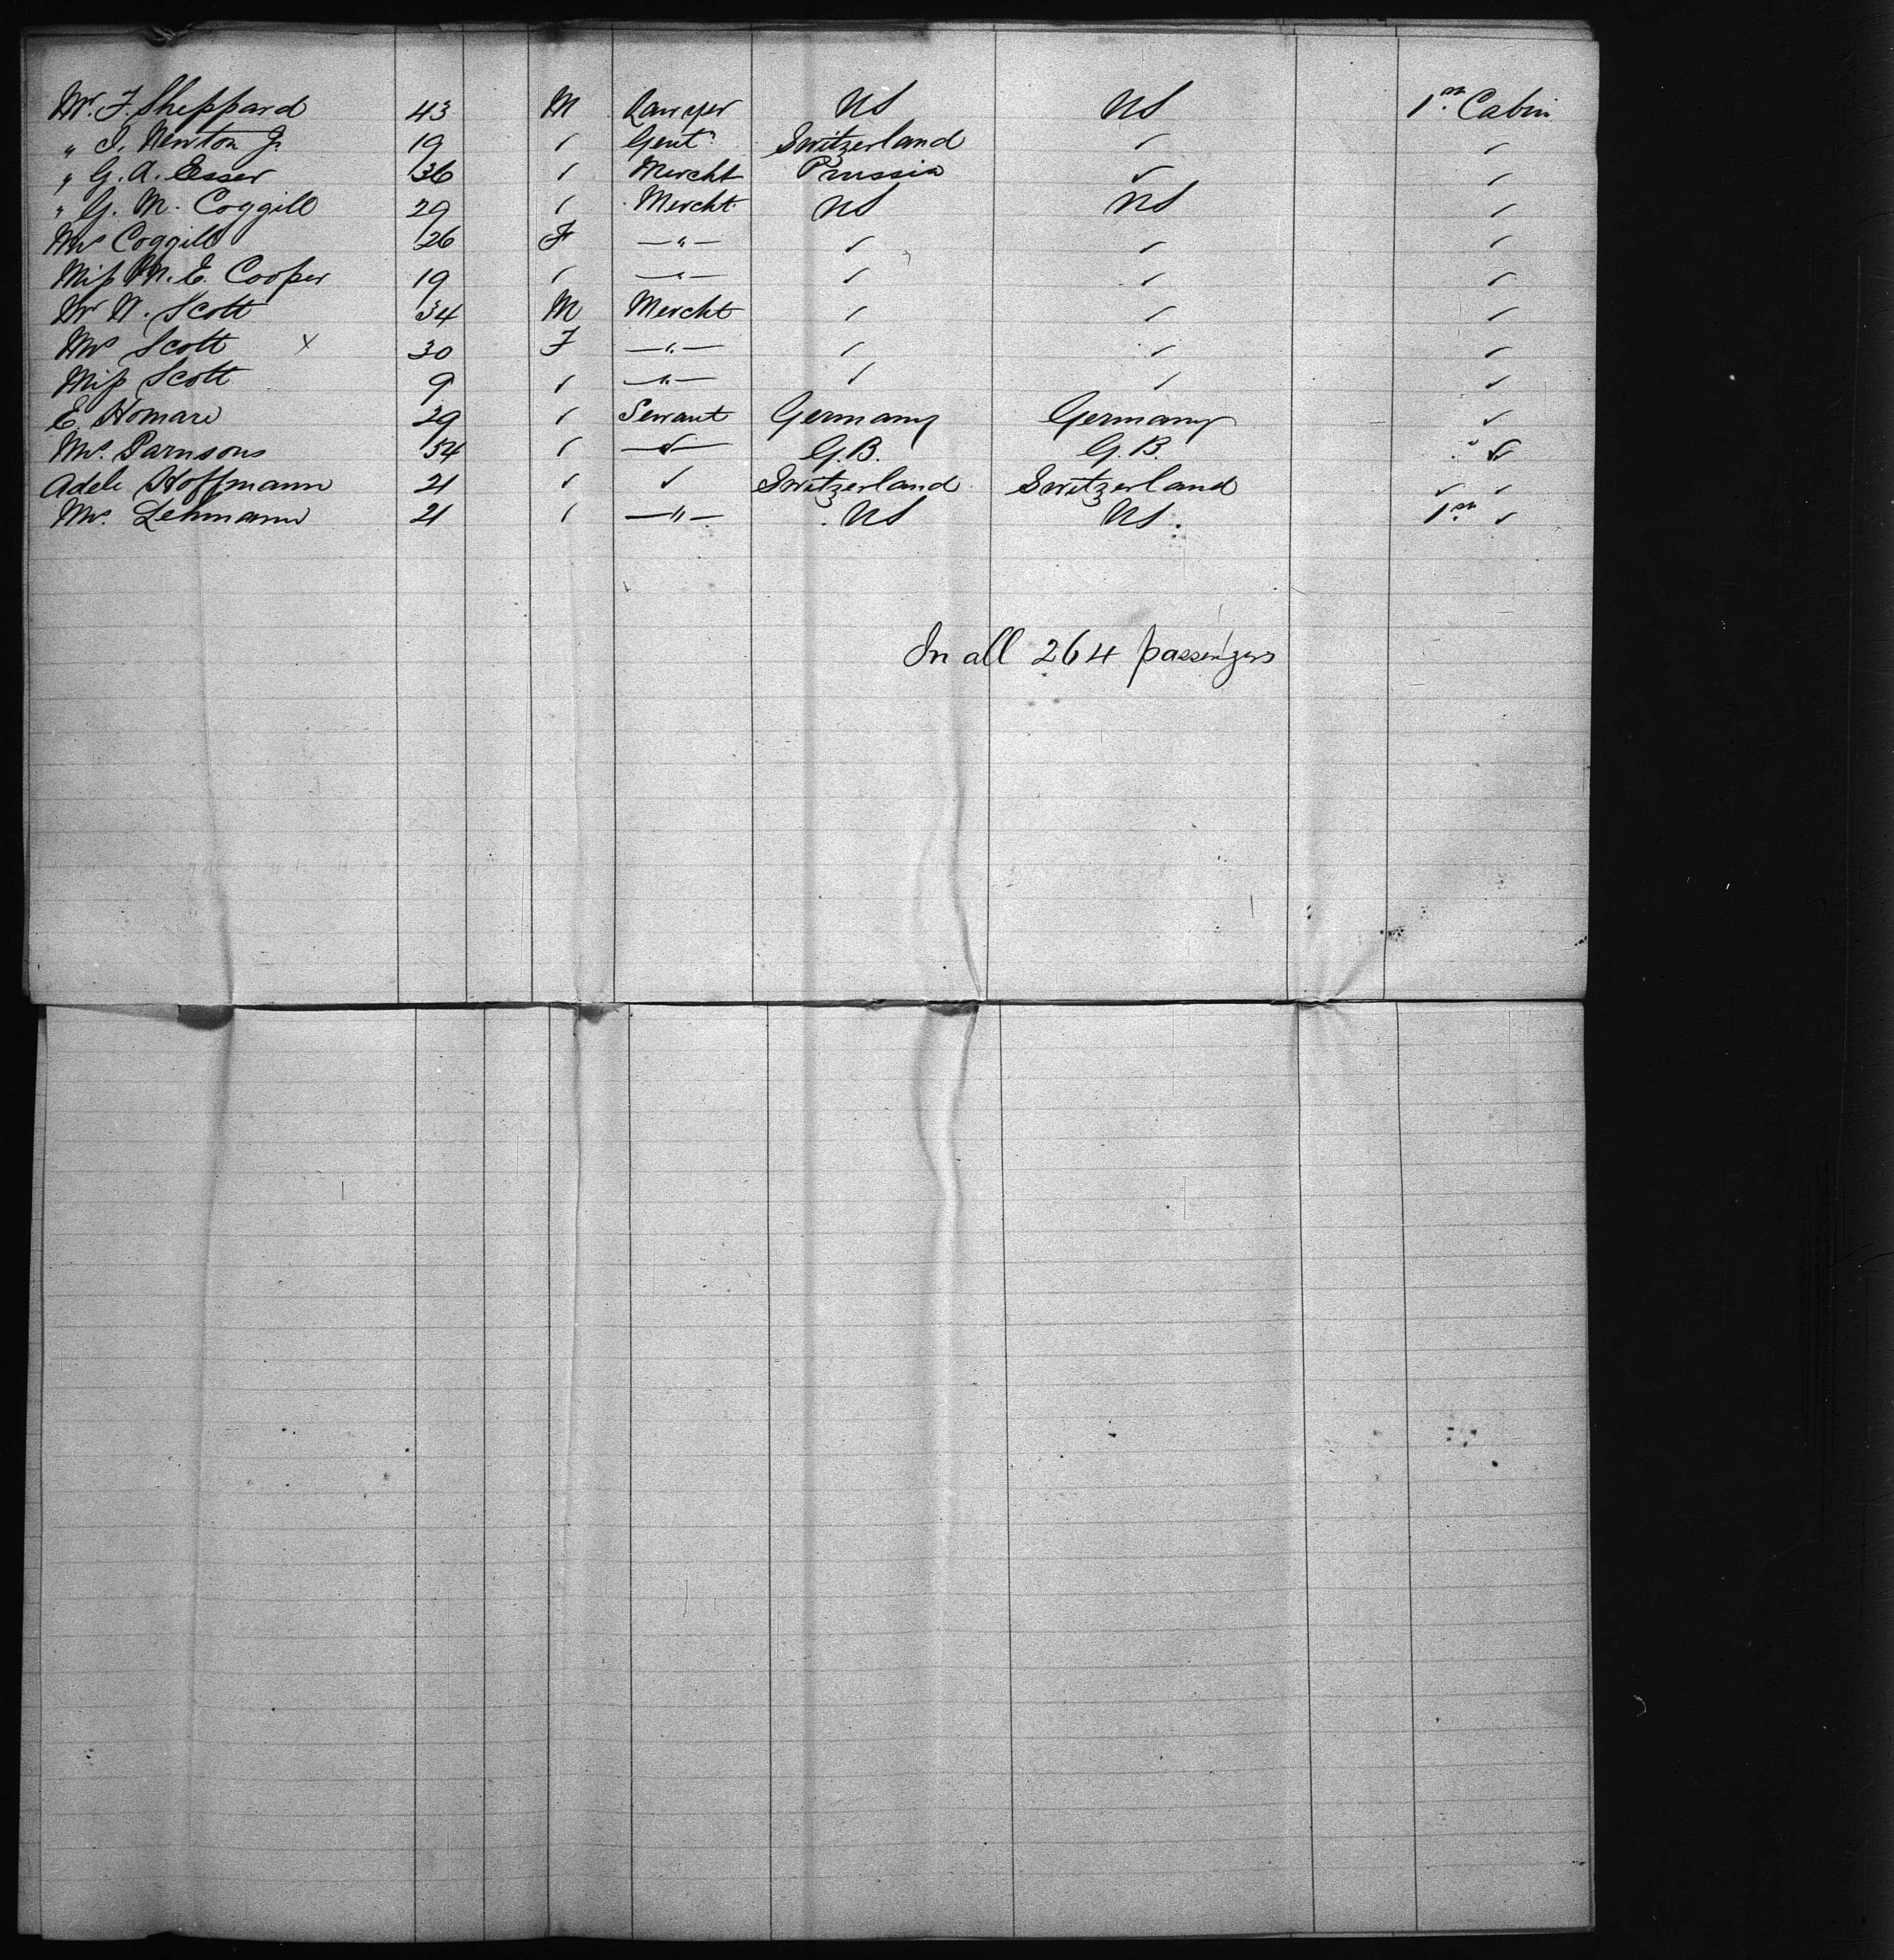 Mr. F. Sheppard 43 M Lawyer US US 1st Cabin
" I. Newton Jr 19 ✓ Gent. Switzerland ✓ ✓
" G. A. Esser 36 ✓ Mercht Prussia ✓ ✓
" G. M. Coggill 29 ✓ Mercht. US US ✓
Mrs Coggill 26 F —"— ✓ ✓ ✓
Miss M. E. Cooper 19 ✓ —"— ✓ ✓ ✓
Mr W. Scott 34 M Mercht ✓ ✓ ✓
Mrs Scott x 30 F —"— ✓ ✓ ✓
Miss Scott 9 ✓ —"— ✓ ✓ ✓
E. Homare 29 ✓ Servant Germany Germany ✓
Mrs. Parnsons 34 ✓ —"— G.B. G.B. " ✓
Adele Hoffmann 21 ✓ ✓ Switzerland Switzerland ✓ ✓
Mrs. Lehmann 21 ✓ —"— US US. 1st ✓
In all 264 passengers